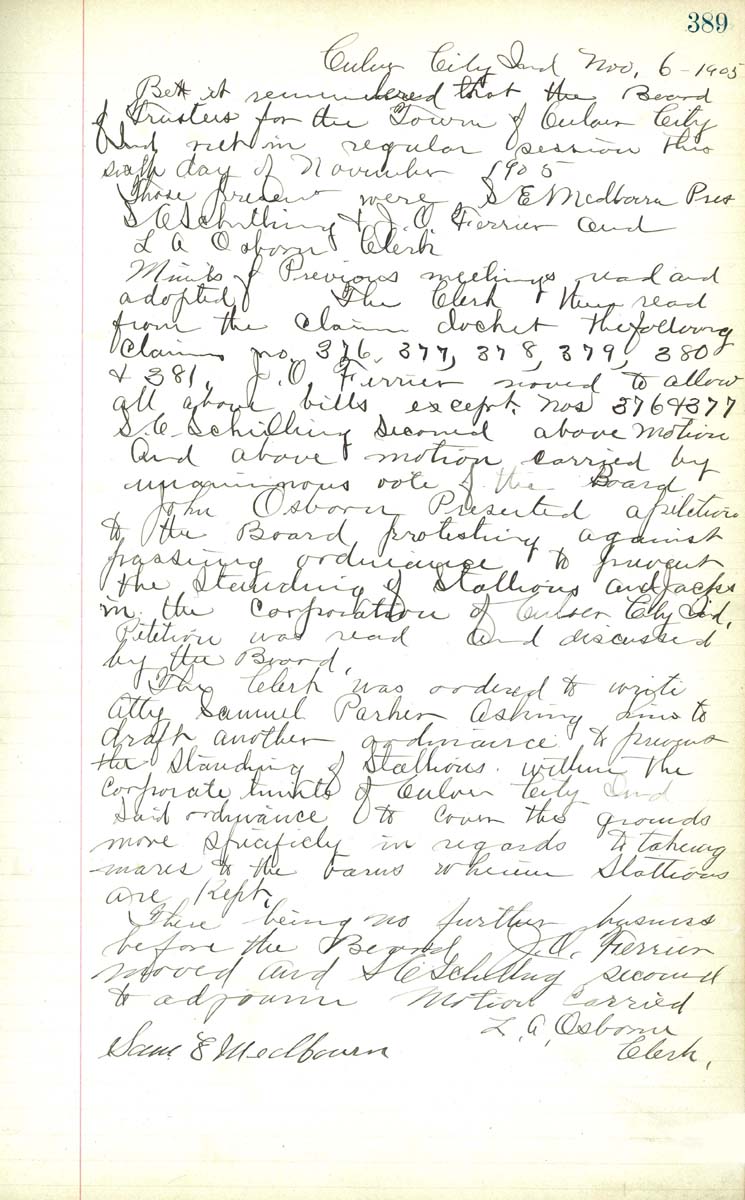 389
Culver City Ind Nov. 6 - 1905
Be it remembered that the Board
of Trustees for the Town of Culver City
Ind met in regular session this
sixth day of November 1905
Those present were S E Medbourn Pres
S C Schilling & J. O. Ferrier and
L A Osborn Clerk
Minits of Previous meetings read and
adopted The Clerk then read
from the claim docket the following
claims no. 376, 377, 378, 379, 380
& 381. J. O. Ferrier moved to allow
all above bills except nos 376 & 377
S. C. Schilling seconed above motion
and above motion carried by
unanimous vote of the Board
John Osborn Presented a petition
to the Board protesting against
passing ordinance to prevent
the Standing of Stallions and Jacks
in the corporation of Culver City Ind.
Petition was read and discussed
by the Board.
The Clerk was ordered to write
Atty Samuel Parker asking him to
draft another ordinance to prevent
the Standing of Stallions within the
corporate limits of Culver City Ind
said ordinance to cover the grounds
more specificly in regards to taking
mares to the barns wherein Stallions
are Kept.
There being no further business
before the Board J. O. Ferrier
moved and S C Schilling second
to adjourn Motion carried
L. A. Osborn
Sam. E Medbourn Clerk.